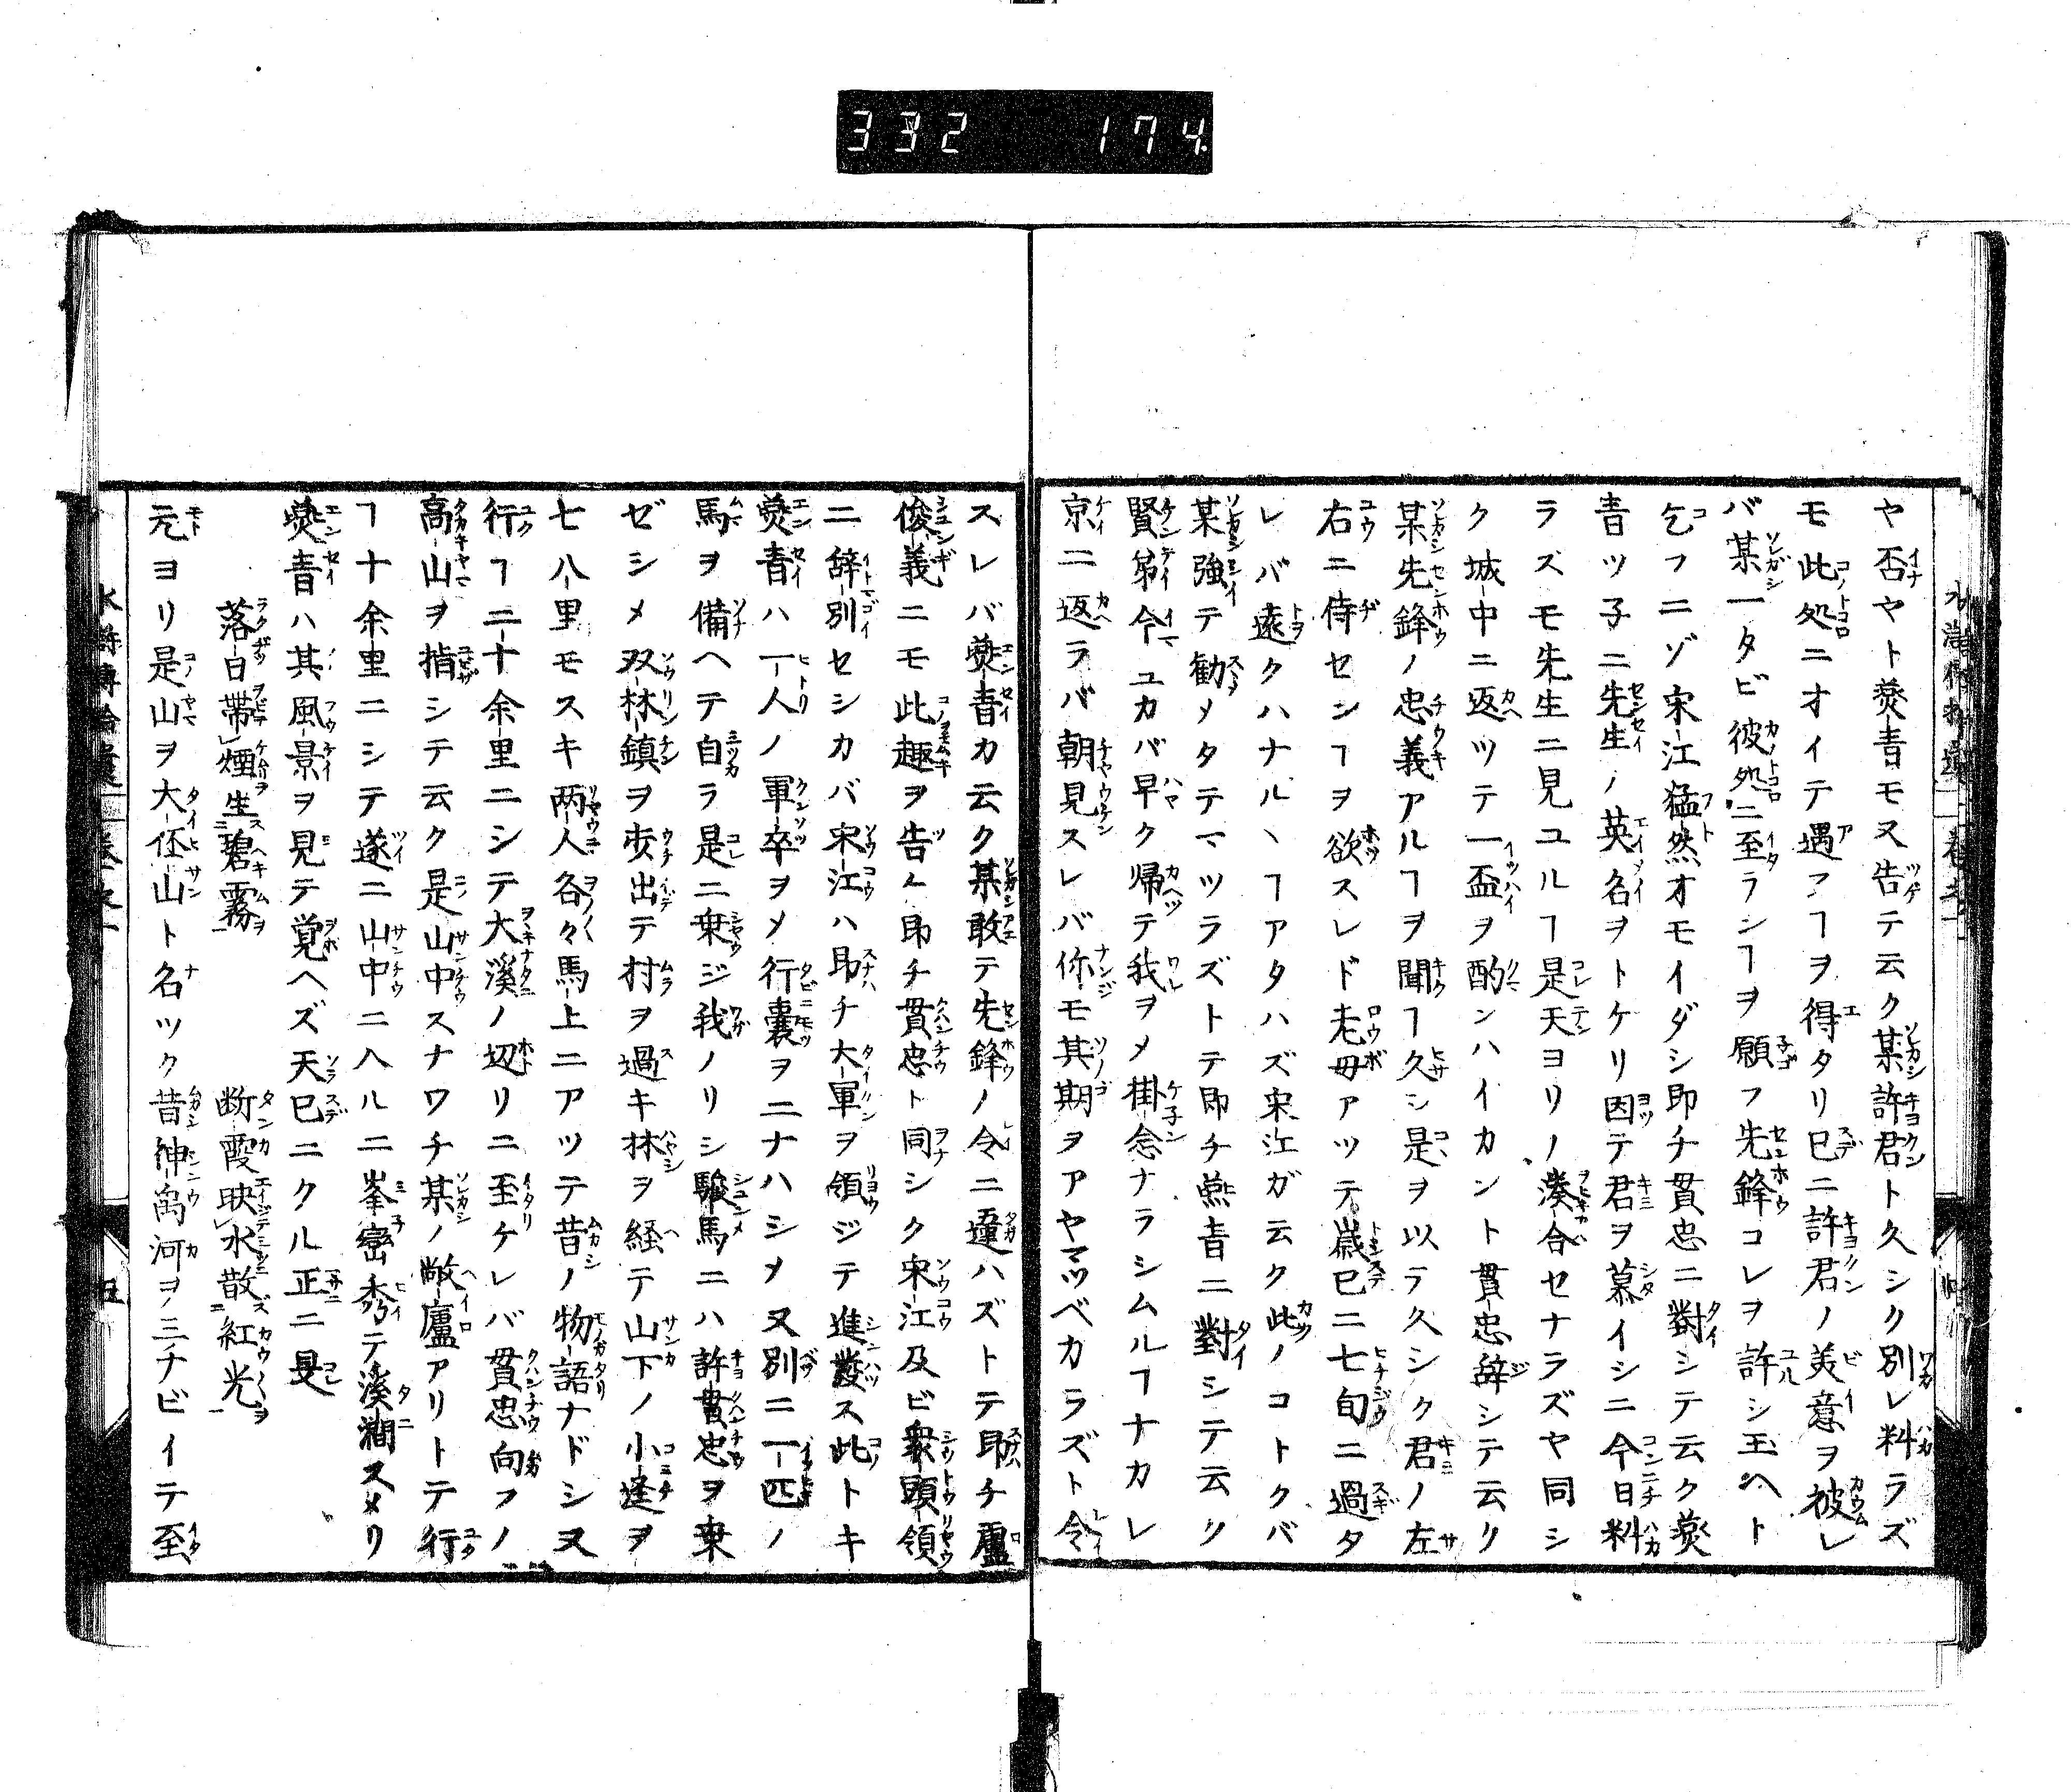 332 174
ヤ否ヤト燕青モヌ告テ云ク某許君ト久シク別レ料ラズ
モ此処ニオイテ遇フヿヲ得タリ已ニ許君ノ美意ヲ被レ
バ某一タビ彼処ニ至ラシヿヲ願フ先鋒コレヲ許シ玉ヘト
乞フニゾ宋江猛然オモイダシ即チ貫忠ニ對シテ云ク燕
青ツ子ニ先生ノ英名ヲトケリ因テ君ヲ慕イシニ今日料
ラズモ先生ニ見ユルヿ是天ヨリノ湊合セナラズヤ同シ
ク城中ニ返ツテ一盃ヲ酌ンハイカント貫忠辞シテ云ク
某先鋒ノ忠義アルヿヲ聞ヿ久シ是ヲ以ラ久シク君ノ左
右ニ侍センヿヲ欲スレド老母アツテ歳已ニ七旬ニ過タ
レバ遠クハナルヽヿアタハズ宋江ガ云ク此ノコトクバ
某強テ勧メタテマツラズトテ即チ燕青ニ對シテ云ク
賢弟今ユカバ早ク帰テ我ヲメ掛念ナラシムルヿナカレ
京ニ返ラバ朝見スレバ你モ其期ヲアヤマツベカラズト令
スレバ燕青カ云ク某敢テ先鋒ノ令ニ違ハズトテ即チ盧
俊義ニモ此趣ヲ告ケ即チ貫忠ト同シク宋江及ビ衆頭領
ニ辞別セシカバ宋江ハ即チ大軍ヲ領ジテ進發ス此トキ
燕青ハ一人ノ軍卒ヲメ行嚢ヲニナハシメ又別ニ一匹ノ
馬ヲ備ヘテ自ラ是ニ乗ジ我ノリシ駿馬ニハ許貫忠ヲ乗
ゼシメ双林鎮ヲ出テ村ヲ過キ林ヲ経テ山下ノ小逕ヲ
七八里モスキ两人各々馬上ニアツテ昔ノ物語ナドシヌ
行ヿ二十余里ニシテ大溪ノ辺リニ至ケレバ貫忠向フノ
高山ヲ指シテ云ク是山中スナワチ某ノ敝廬アリトテ行
ヿ十余里ニシテ遂ニ山中ニ入ルニ峯巒秀テ溪澗スメリ
燕青ハ其風景ヲ見テ覚ヘズ天已ニクル正ニ是
落日帯煙生碧霧 断霞映水散紅光
元ヨリ是山ヲ大伾山ト名ツク昔神禹河ヲ三ナビイテ至